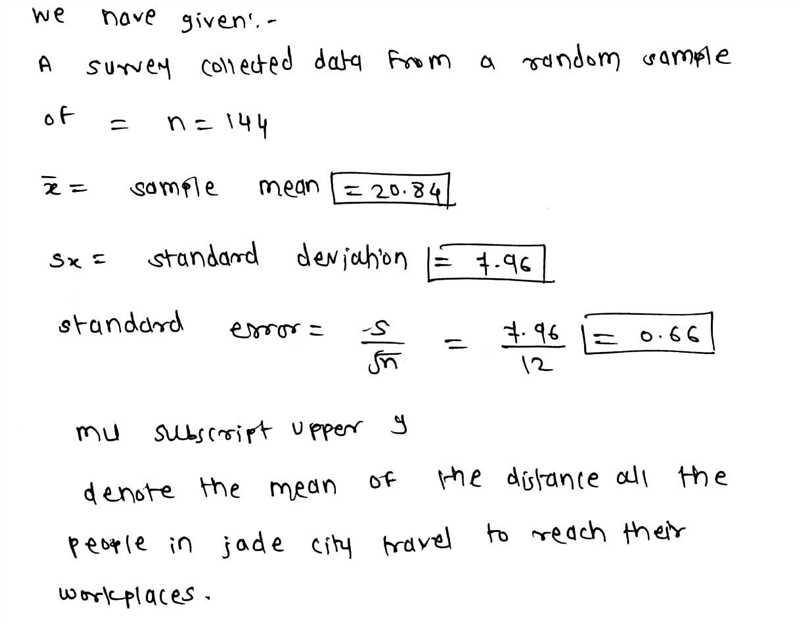 we have given:-
A survey collected data from a random sample
of = n = 144
x̄ = sample mean = 20.84
sx = standard deviation = 7.96
standard error = s/√n = 7.96/12 = 0.66
mu subscript upper y
denote the mean of the distance all the
people in jade city travel to reach their
workplaces.